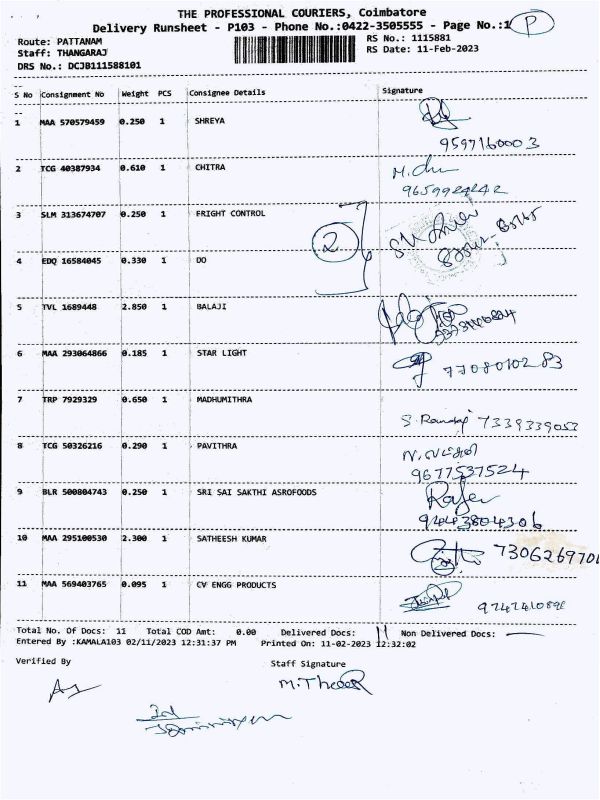 THE PROFESSIONAL COURIERS, Coimbatore
Delivery Runsheet - P103 - Phone No.:0422-3505555 - Page No.:1 P
Route: PATTANAM RS No.: 1115881
Staff: THANGARAJ RS Date: 11-Feb-2023
DRS No.: DCJB111588101
S No Consignment No Weight PCS Consignee Details Signature
1 MAA 570579459 0.250 1 SHREYA
9597160003
2 TCG 40387934 0.610 1 CHITRA
9659924242
3 SLM 313674707 0.250 1 FRIGHT CONTROL
2
4 EDQ 16584045 0.330 1 DO
5 TVL 1689448 2.850 1 BALAJI
6 MAA 293064866 0.185 1 STAR LIGHT
7708010283
7 TRP 7929329 0.650 1 MADHUMITHRA
7339339053
8 TCG 50326216 0.290 1 PAVITHRA
9677537524
9 BLR 500804743 0.250 1 SRI SAI SAKTHI ASROFOODS
9443804306
10 MAA 295100530 2.300 1 SATHEESH KUMAR
730626970
11 MAA 569403765 0.095 1 CV ENGG PRODUCTS
Total No. Of Docs: 11 Total COD Amt: 0.00 Delivered Docs: 11 Non Delivered Docs: —
Entered By :KAMALA103 02/11/2023 12:31:37 PM Printed On: 11-02-2023 12:32:02
Verified By Staff Signature